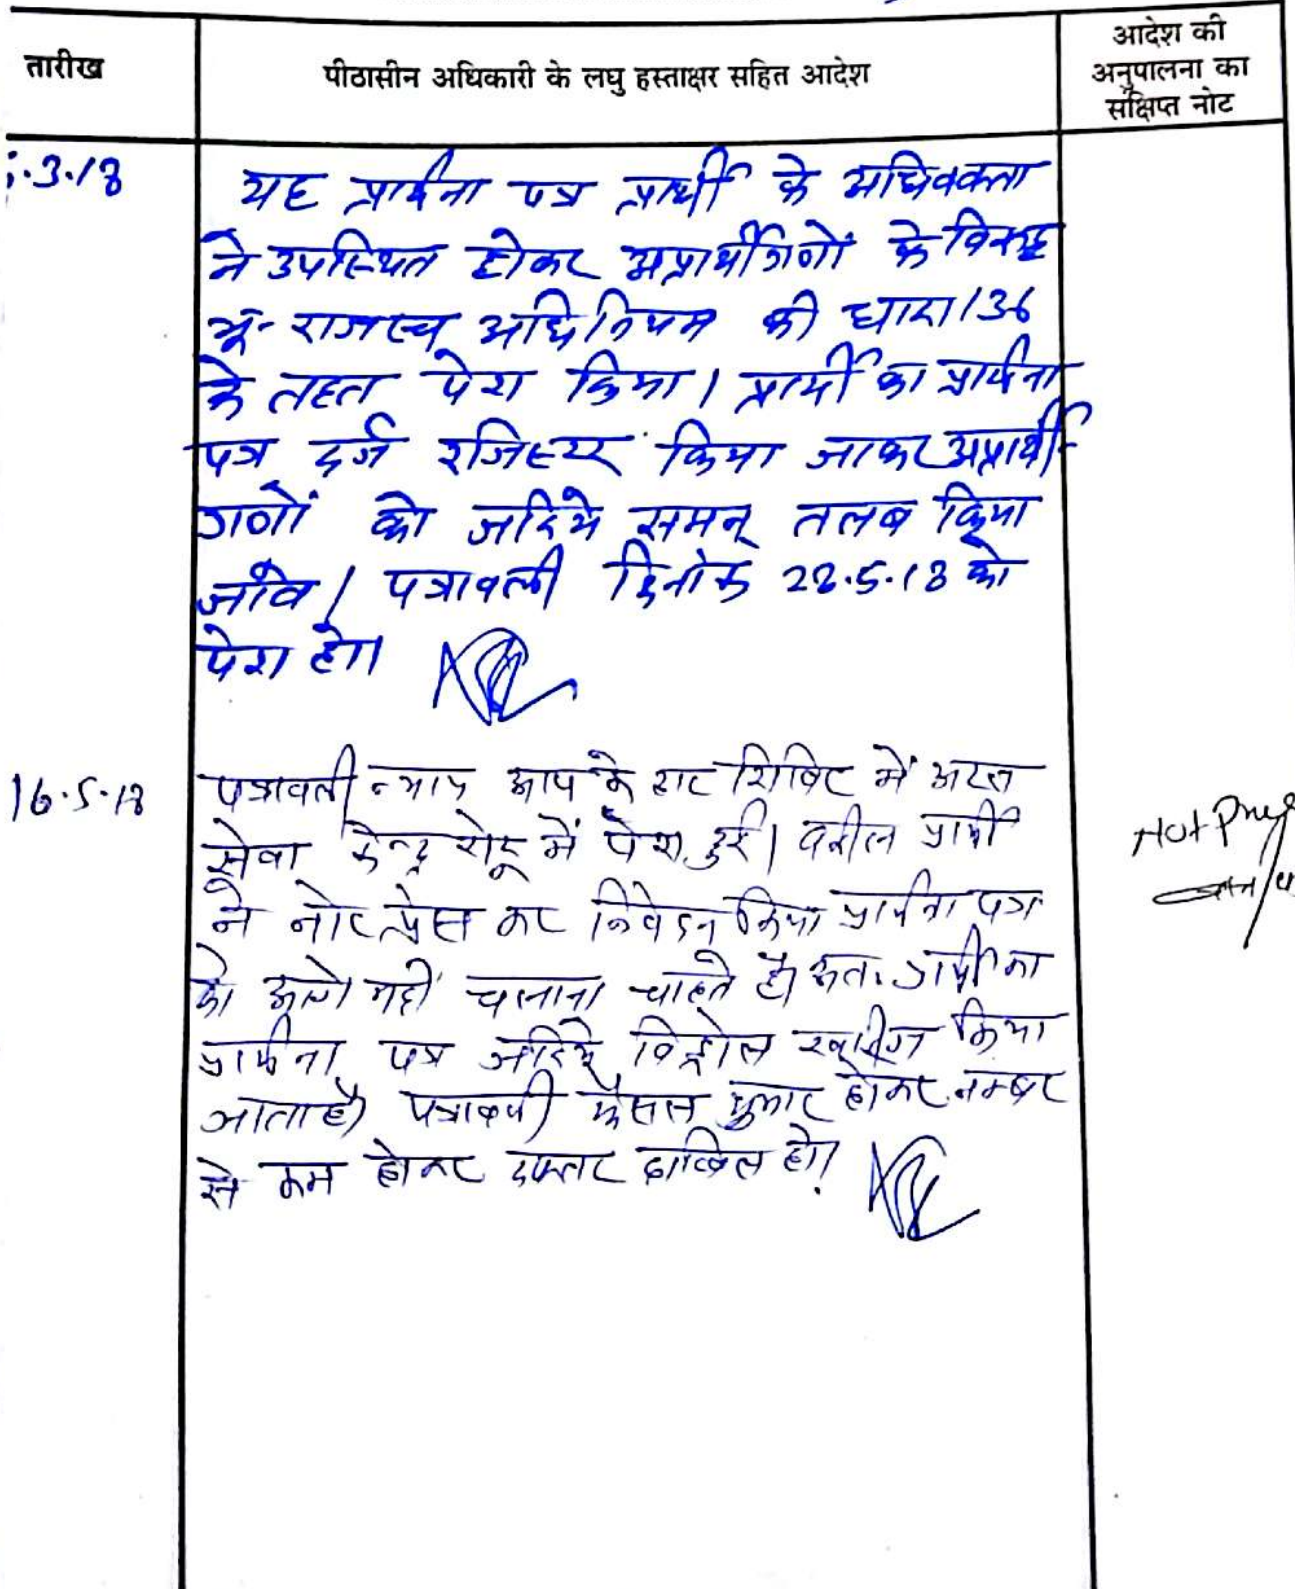 तारीख
पीठासीन अधिकारी के लघु हस्ताक्षर सहित आदेश
आदेश की
अनुपालना का
संक्षिप्त नोट
.3.18
यह प्रार्थना पत्र प्रार्थी के अधिवक्ता
ने उपस्थित होकर अप्रार्थीगणों के विरूद्ध
भू-राजस्व अधिनियम की धारा 136
के तहत पेश किया। प्रार्थी का प्रार्थना
पत्र दर्ज रजिस्टर किया जाकर अप्रार्थी
गणों को जरिये समन् तलब किया
जावे। पत्रावली दिनांक 22.5.18 को
पेश हो।
16.5.18
पत्रावली न्याय आपके द्वार शिविर में अटल
सेवा केन्द्र में पेश हुई। वकील प्रार्थी
ने नोट प्रेस कर निवेदन किया प्रार्थना पत्र
को आगे नहीं चलाना चाहते है। अतः प्रार्थी का
प्रार्थना पत्र जरिये विड्रोल खारीज किया
जाता है। पत्रावली फैसल शुमार होकर नम्बर
से कम होकर दफ्तर दाखिल हो।
Not